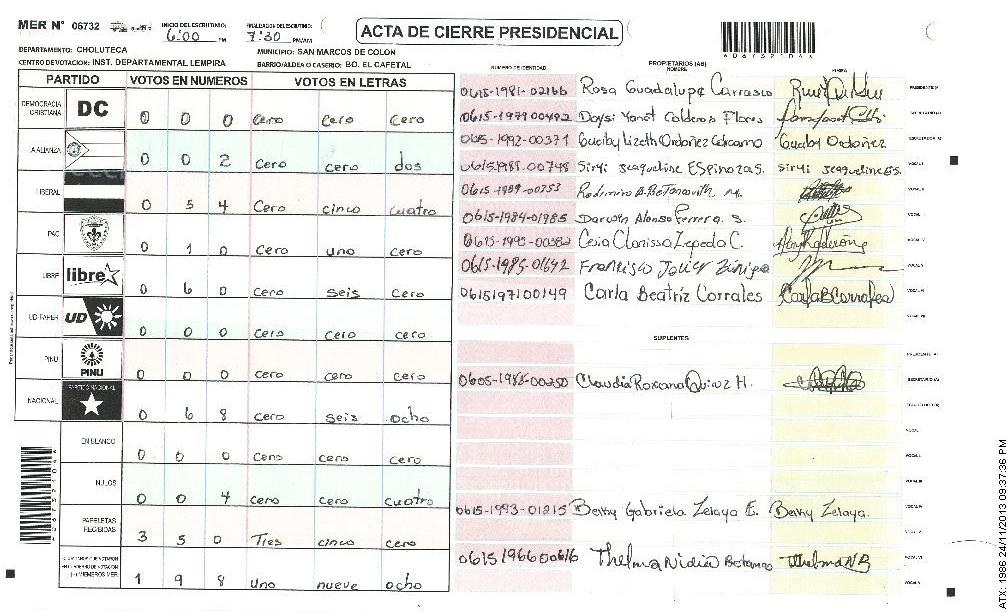 MER N° 06732
INICIO DEL ESCRUTINIO: 6:00 PM
FINALIZACION ESCRUTINIO: 7:30 PM/AM
ACTA DE CIERRE PRESIDENCIAL
DEPARTAMENTO: CHOLUTECA
MUNICIPIO: SAN MARCOS DE COLON
CENTRO DE VOTACION: INST. DEPARTAMENTAL LEMPIRA
BARRIO/ALDEA O CASERIO: BO. EL CAFETAL
PARTIDO VOTOS EN NUMEROS VOTOS EN LETRAS
DEMOCRACIA CRISTIANA DC 0 0 0 Cero Cero Cero
A.ALIANZA 0 0 2 cero cero dos
LIBERAL 0 5 4 Cero cinco cuatro
PAC 0 1 0 Cero uno cero
LIBRE libre 0 6 0 Cero seis Cero
UD-FAPER UD 0 0 0 Cero Cero Cero
PINU PINU 0 0 0 cero cero cero
NACIONAL PARTIDO NACIONAL 0 6 8 cero seis ocho
EN BLANCO 0 0 0 Cero cero cero
NULOS 0 0 4 Cero cero cuatro
PAPELETAS RECIBIDAS 3 5 0 Tres cinco cero
1 9 8 uno nueve ocho
NUMERO DE IDENTIDAD PROPIETARIOS (AS) NOMBRE FIRMA
0615-1981-02166 Rosa Guadalupe Carrasco
0615-1979 00492 Daysi Yanet Calderas Flores
0615-1992-00371 Gueiby Lizeth Ordoñez Gueiby Ordoñez
0615 1985-00748 SirYi Jeaqueline Espinoza S. SirYi Jeaqueline ES.
0615-1989-00753
0615-1984-01985 Darwin Alonso Ferrera S.
0615-1995-00382 Cesia Clarissa Zepeda C.
0615-1985-01642 Francisco Javier Zuniga
06151971 00149 Carla Beatriz Corrales Carla B Corrales
SUPLENTES
0605-1988-00250 Claudia Roxana Quiroz H.
0615-1993-01215 Berky Gabriela Zelaya E. Berky Zelaya.
0615 1966 00616 Thelma Nidia Betanco Thelma NB
ATX: 1986 24/11/2013 09:37:36 PM